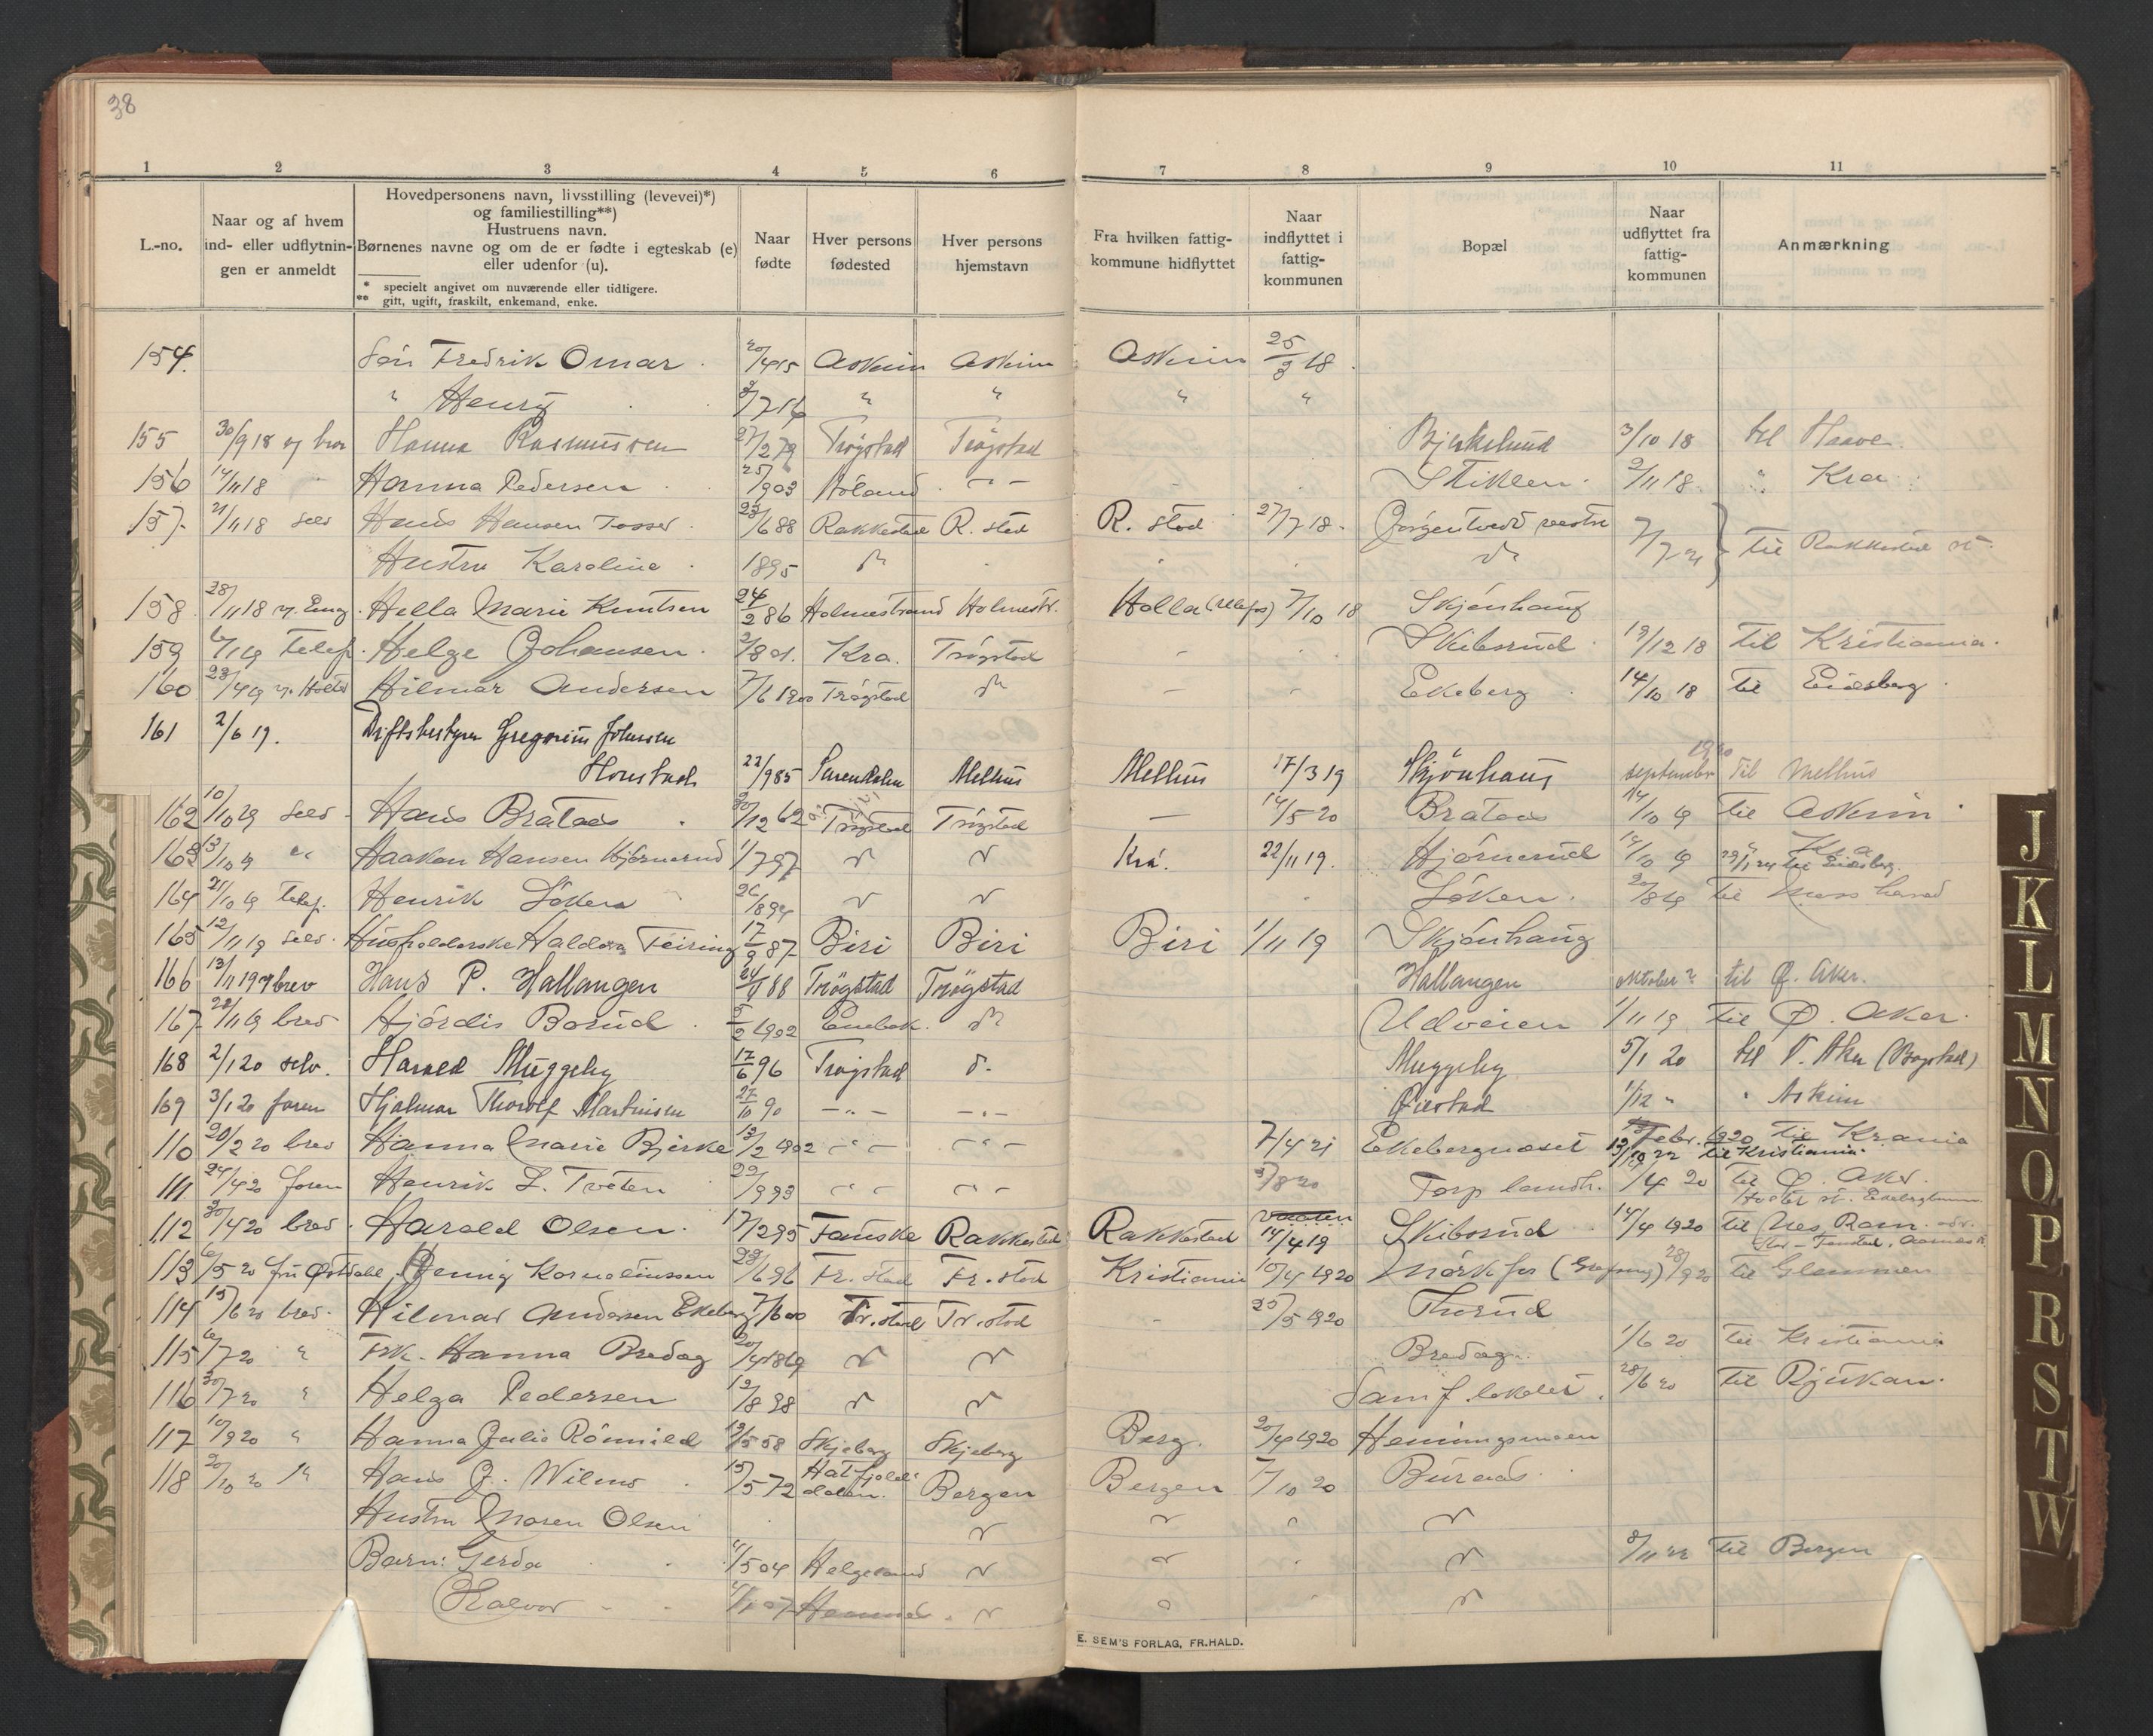 38
1 2 3 4 5 6 7 8 9 10 11
L.-no.
Naar og af hvem
ind- eller udflytnin-
gen er anmeldt
Hovedpersonens navn, livsstilling (levevei)*)
og familiestilling**)
Hustruens navn.
Børnenes navne og om de er fødte i egteskab (e)
eller udenfor (u).
* specielt angivet om nuværende eller tidligere.
** gift, ugift, fraskilt, enkemand, enke.
Naar
fødte
Hver persons
fødested
Hver persons
hjemstavn
Fra hvilken fattig-
kommune hidflyttet
Naar
indflyttet i
fattig-
kommunen
Bopæl
Naar
udflyttet fra
fattig-
kommunen
Anmærkning
154. Søn Fredrik Omar 20/4 15 Askim Askim Askim 25/3 18
" Henry " " " "
155 30/9 18 Hanna Rasmussen 27/2 79 Trøgstad Trøgstad Bjerkelund 3/10 18 til Haavø
156 14/11 18 " Hanna Pedersen Høland - " - Stiklen 2/11 18 " Kra
157. 21/11 18 selv Hans Hansen Tosser 23/6 88 Rakkestad R. stad R. stad 27/7 18 vestre 7/7 21 til Rakkestad st.
Hustru Karoline 1895
158. 28/11 18 Hella Marie Knutsen 24/2 86 Holmestrand Holmestr. Holla 7/10 18 Skjønhaug
159 6/1 19 Telef. Helge Johansen Kra. Trøgstad Skibsrud 19/12 18 til Kristiania
160 Hilmar Andersen 7/6 1900 Trøgstad Ekeberg 14/10 18 til Eidsberg
161 2/6 19. Driftsbestyrer Gregorius Johnsen
Horstad 22/9 85 Surendalen Melhus Melhus 17/3 19 Skjønhaug september 1920 til Melhus
162 10/10 19 selv Hans Brataas 30/12 62 Trøgstad Trøgstad — 14/5 20 Brataas 14/10 19 til Askim
163 13/10 19 " Haakon Hansen Hjørnerud 1/7 97 Kra. 22/11 19. Hjørnerud 14/10 19 " Kra
til Eidsberg.
164 21/10 19 telef. Henrik Løken 26/8 94 Løken 20/8 19 til Moss herred
165 12/11 19 selv. Husholderske Haldora Feiring 17/9 87 Biri Biri Biri 1/11 19 Skjønhaug
166 13/11 19 brev Hans P. Hallangen 88 Trøgstad Trøgstad Hallangen oktober? til Ø. Aker.
167. 22/11 19 brev Hjørdis Borud 5/2 1902 Enebak. Udveien 1/11 19 til Ø. Aker.
168 2/1 20 selv. Harald Muggeby 17/6 96 Trøgstad Muggeby 5/1 20 til V. Aker (Bogstad)
169 3/1 20 foren Hjalmar Thorolf Martinsen 27/10 90 - " - - " - Øiestad 1/12 " " Askim
110 20/2 20 brev Hanna Marie Bjerke 13/2 1902 - " - - " - 7/4 21 Ekebergnæset Febr. 1920 til Krania
til Kristiania
111 24/4 20 foren Henrik L. Tveten 22/9 93 - " - - " - 3/8 20 Torp landh. 1/4 20 til Ø. Aker.
112 30/4 20 brev Harald Olsen 17/2 95 Fauske Rakkestad Rakkestad 14/4 19 Skibsrud 14/4 1920 til Nes Rom.
113 6/5 20 fru Østdahl Hennig Korneliussen 22/6 96 Fr. stad Fr. stad Kristiania 10/4 1920 Mørkfos 28/9 20 til Glemmen
114 15/6 20 brev. Hilmar Andersen Ekeberg 7/6 00 Tr. stad Tr. stad 25/5 1920 Thorud
115 6/7 20 " Frk. Hanna Bredag 20/4 1869 Bredag 1/6 20 til Kristiania
116 30/7 20 " Helga Pedersen 12/8 98 Samf. lokalet 28/6 20 til Rjukan.
117 10/9 20 " Hanna Julie Rømnild 12/5 58 Skjeberg Skjeberg Berg. 20/4 1920 Henningsmoen
118 2/10 20 " Hans J. Wilmo 15/5 72 Hatfjeld-
dalen. Bergen Bergen 7/10 20 Buraas
Hustru Maren Olsen
Barn: Gerda 5 04 Helgeland 8/11 22 til Bergen
Halvor 07
E. SEM'S FORLAG, FR.HALD.
J
K
L
M
N
O
P
R
S
T
W